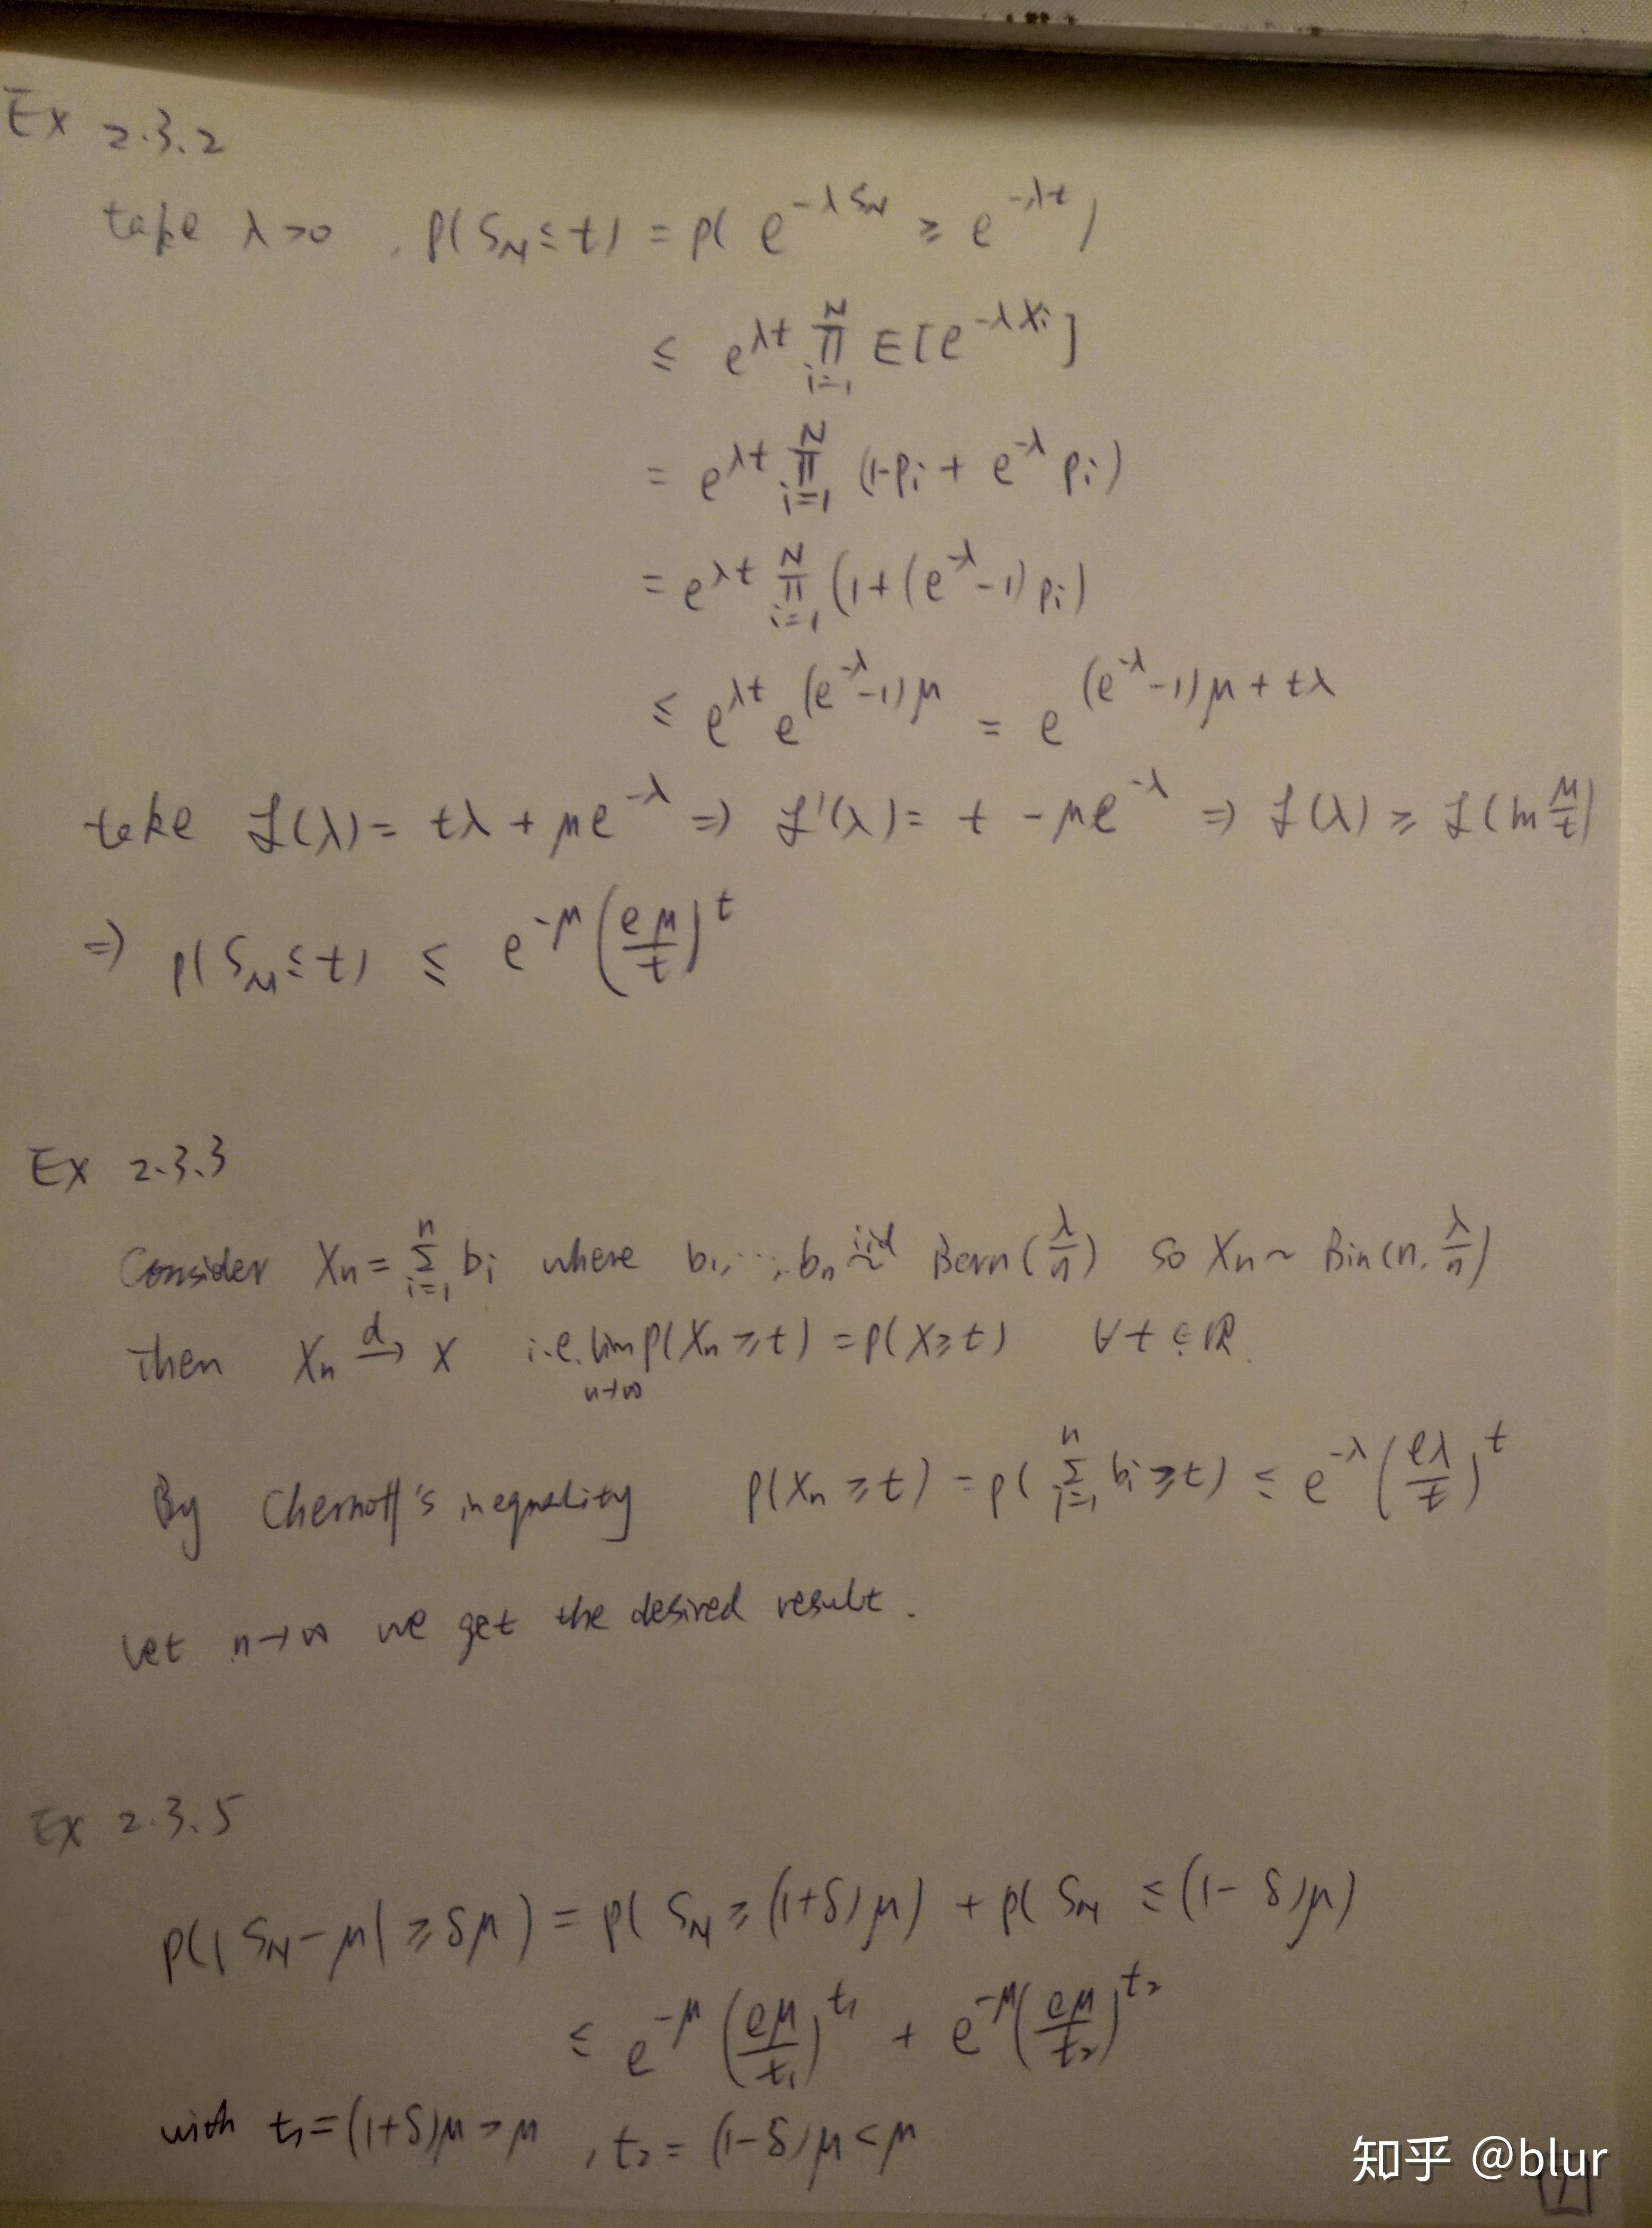 Ex 2.3.2
take λ>0, P(S_N ≤ t) = P(e^{-λS_N} ≥ e^{-λt})
≤ e^{λt} ∏_{i=1}^{N} E[e^{-λX_i}]
= e^{λt} ∏_{i=1}^{N} (1-p_i + e^{-λ} p_i)
= e^{λt} ∏_{i=1}^{N} (1+(e^{-λ}-1)p_i)
≤ e^{λt} e^{(e^{-λ}-1)μ} = e^{(e^{-λ}-1)μ+tλ}
take f(λ) = tλ + μe^{-λ} ⇒ f'(λ) = t - μe^{-λ} ⇒ f(λ) ≥ f(ln μ/t)
⇒ P(S_N ≤ t) ≤ e^{-μ} (eμ/t)^t
Ex 2.3.3
Consider X_n = ∑_{i=1}^{n} b_i where b_1, ..., b_n iid~ Bern(λ/n) so X_n ~ Bin(n, λ/n)
then X_n →^d X i.e. lim_{n→∞} P(X_n ≥ t) = P(X ≥ t) ∀t ∈ ℝ.
By Chernoff's inequality P(X_n ≥ t) = P(∑_{i=1}^{n} b_i ≥ t) ≤ e^{-λ} (eλ/t)^t
Let n→∞ we get the desired result.
Ex 2.3.5
P(|S_N - μ| ≥ δμ) = P(S_N ≥ (1+δ)μ) + P(S_N ≤ (1-δ)μ)
≤ e^{-μ} (eμ/t_1)^{t_1} + e^{-μ} (eμ/t_2)^{t_2}
with t_1 = (1+δ)μ > μ, t_2 = (1-δ)μ < μ
知乎 @blur